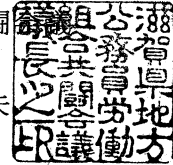 滋賀県地方
公務員労働
組合共闘会議
議長之印